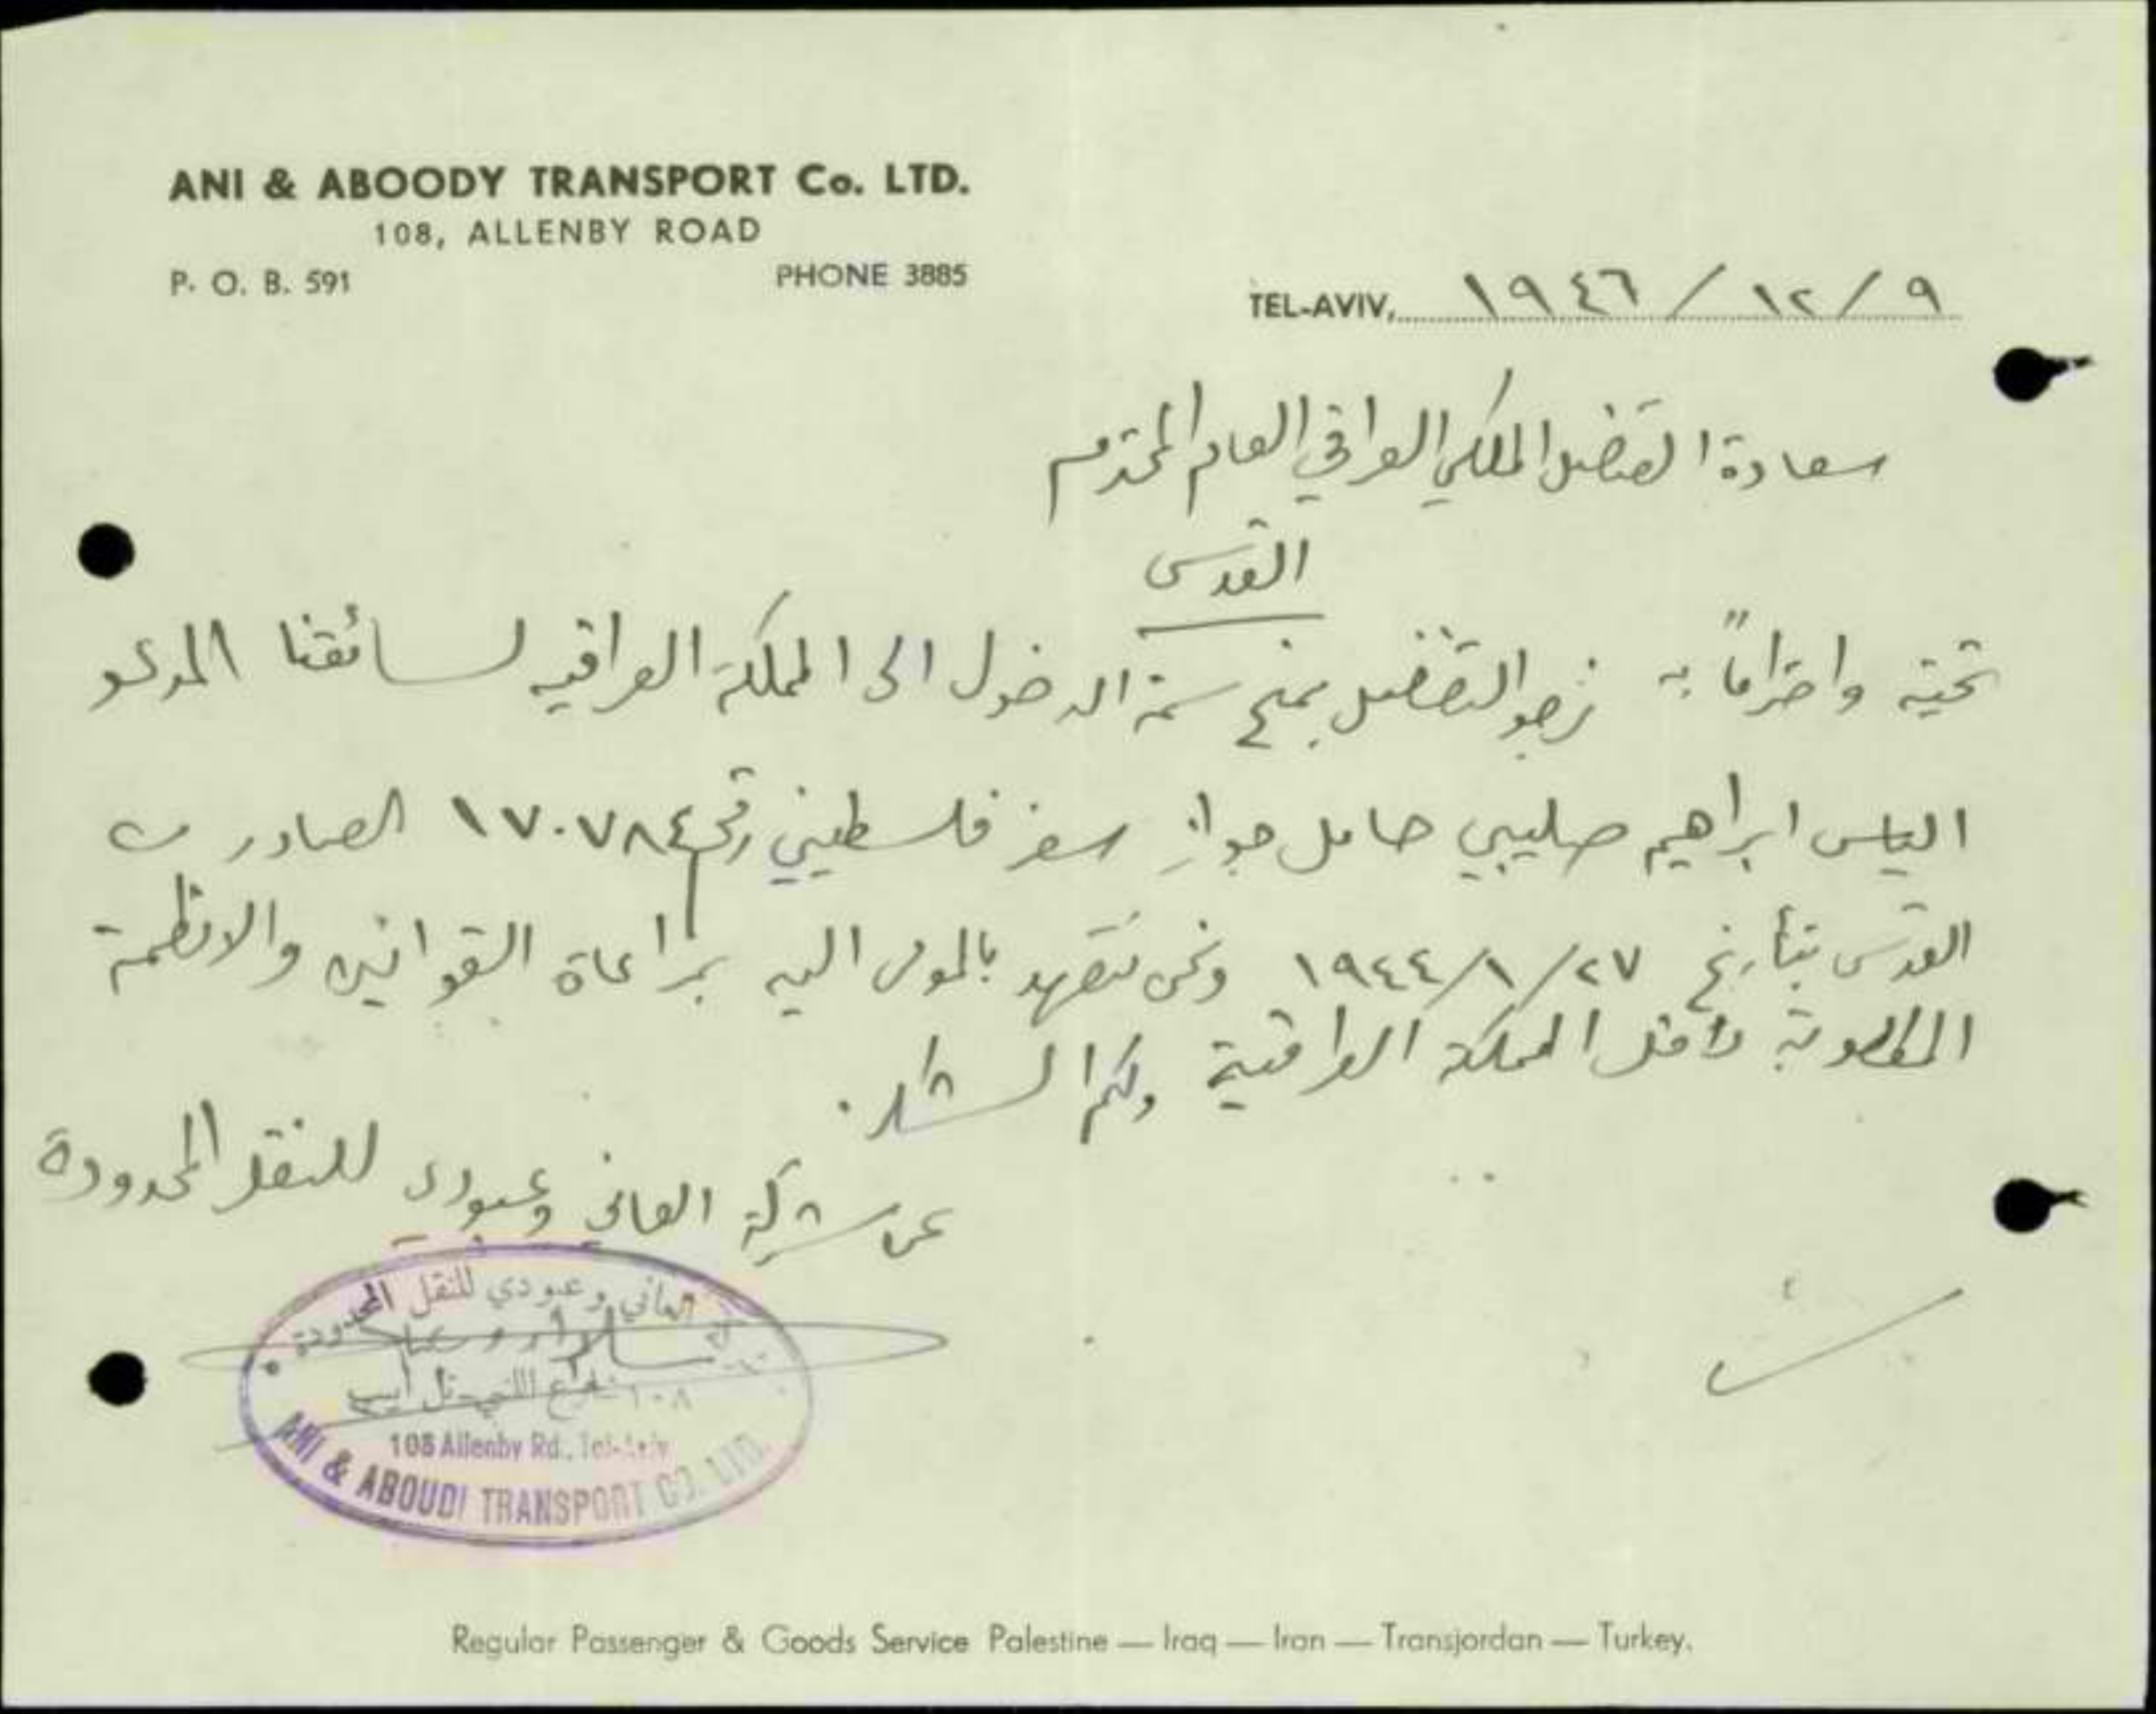 ANI & ABOODY TRANSPORT Co. LTD.
108, ALLENBY ROAD
P. O. B. 591 PHONE 3885
TEL-AVIV, ٩ / ١٢ / ١٩٤٦
سعادة القنصل الملكي العراقي العام المحترم
القدس
تحية واحتراماً نرجو التفضل بمنح سمة الدخول الى المملكة العراقيه لسائقنا المدعو
الياس ابراهيم صليبي حامل جواز سفر فلسطيني رقم ١٧٠٧٨٤ الصادر من
القدس بتأريخ ٢٧/١/١٩٤٤ ونحن نتعهد بالمومى اليه بمراعاة القوانين والانظمة
المطلوبة داخل المملكة العراقية ولكم الشكر.
عن شركة العاني وعبودي للنقل المحدودة
العاني وعبودي للنقل المحدودة
١٠٨ شارع اللنبي تل أبيب
108 Allenby Rd., Tel-Aviv
ANI & ABOUDI TRANSPORT CO. LTD.
Regular Passenger & Goods Service Palestine — Iraq — Iran — Transjordan — Turkey.